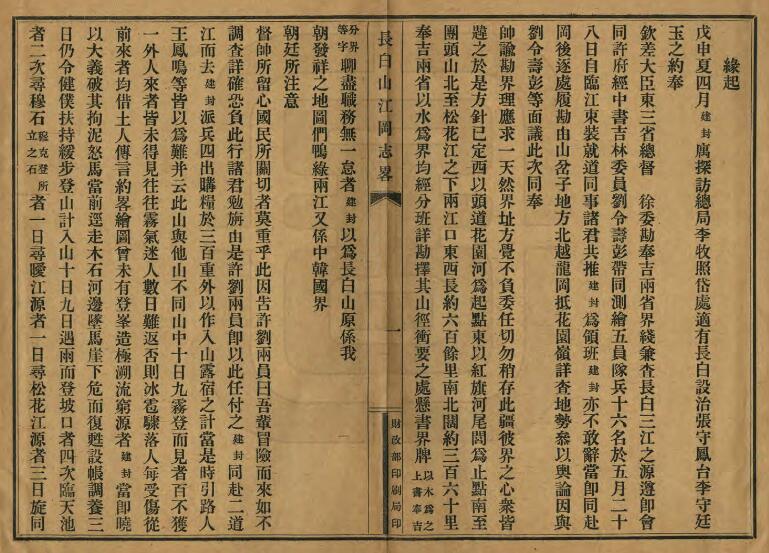 緣起
戊申夏四月建封廌探訪總局李牧照岱處適有長白設治張守鳳台李守廷
玉之約奉
欽差大臣東三省總督　徐委勘奉吉兩省界綫兼查長白三江之源遵即會
同許府經中書吉林委員劉令壽彭帶同測繪五員隊兵十六名於五月二十
八日自臨江東裝就道同事諸君共推建封爲領班建封亦不敢辭當卽同赴
岡後逐處履勘由山岔子地方北越龍岡抵花園嶺詳查地勢參以輿論因與
劉令壽彭等面議此次同奉
帥諭勘界理應求一天然界址方覺不負委任切勿稍存此疆彼界之心衆皆
韙之於是方針已定西以頭道花園河爲起點東以紅旗河尾閭爲止點南至
團頭山北至松花江之下兩江口東西長約六百餘里南北闊約三百六十里
奉吉兩省以水爲界均經分班詳勘擇其山徑衝要之處懸書界牌以木爲之上書奉吉
長白山江岡志畧
一
財政部印刷局印
分界等字聊盡職務無一怠者建封以爲長白山原係我
朝發祥之地圖們鴨綠兩江又係中韓國界
朝廷所注意
督帥所留心國民所關切者莫重乎此因告許劉兩員曰吾輩冒險而來如不
調查詳確恐負此行諸君勉旃由是許劉兩員卽以此任付之建封同赴二道
江而去建封派兵四出購糧於三百重外以作入山露宿之計當是時引路人
王鳳鳴等皆以爲難并云此山與他山不同山中十日九霧登而見者百不獲
一外人來者皆未得見往往霧氣迷人數日難返否則冰雹驟落人每受傷從
前來者均借土人傳言約畧繪圖曾未有登峯造極溯流窮源者建封當卽曉
以大義破其拘泥怒馬當前逕走木石河邊墜馬崖下危而復甦設帳調養三
日仍令健僕扶持緩步登山計入山十日九日遇雨而登坡口者四次臨天池
者二次尋穆石穆克登所立之石者一日尋曖江源者一日尋松花江源者三日旋同